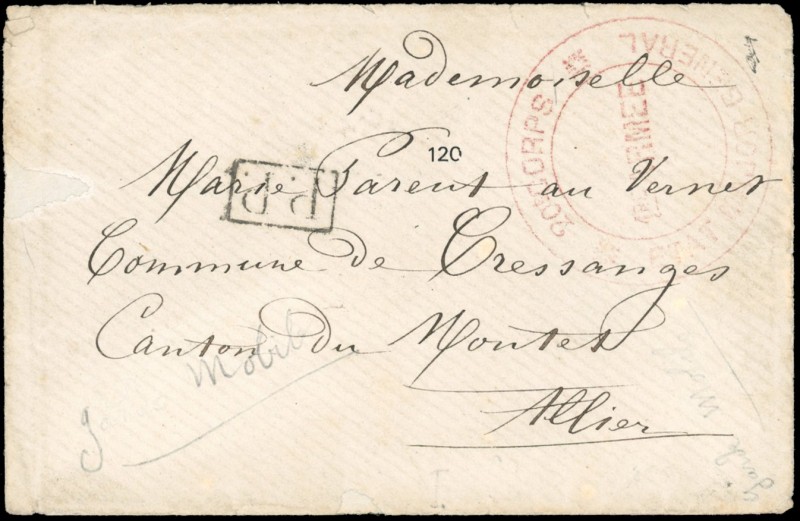 Mademoiselle
120
Marie Parent au Vernet
P.P.
Commune de Cressanges
Canton du Montet
Allier
20E CORPS
ETAT MAJOR GENERAL
Mobile